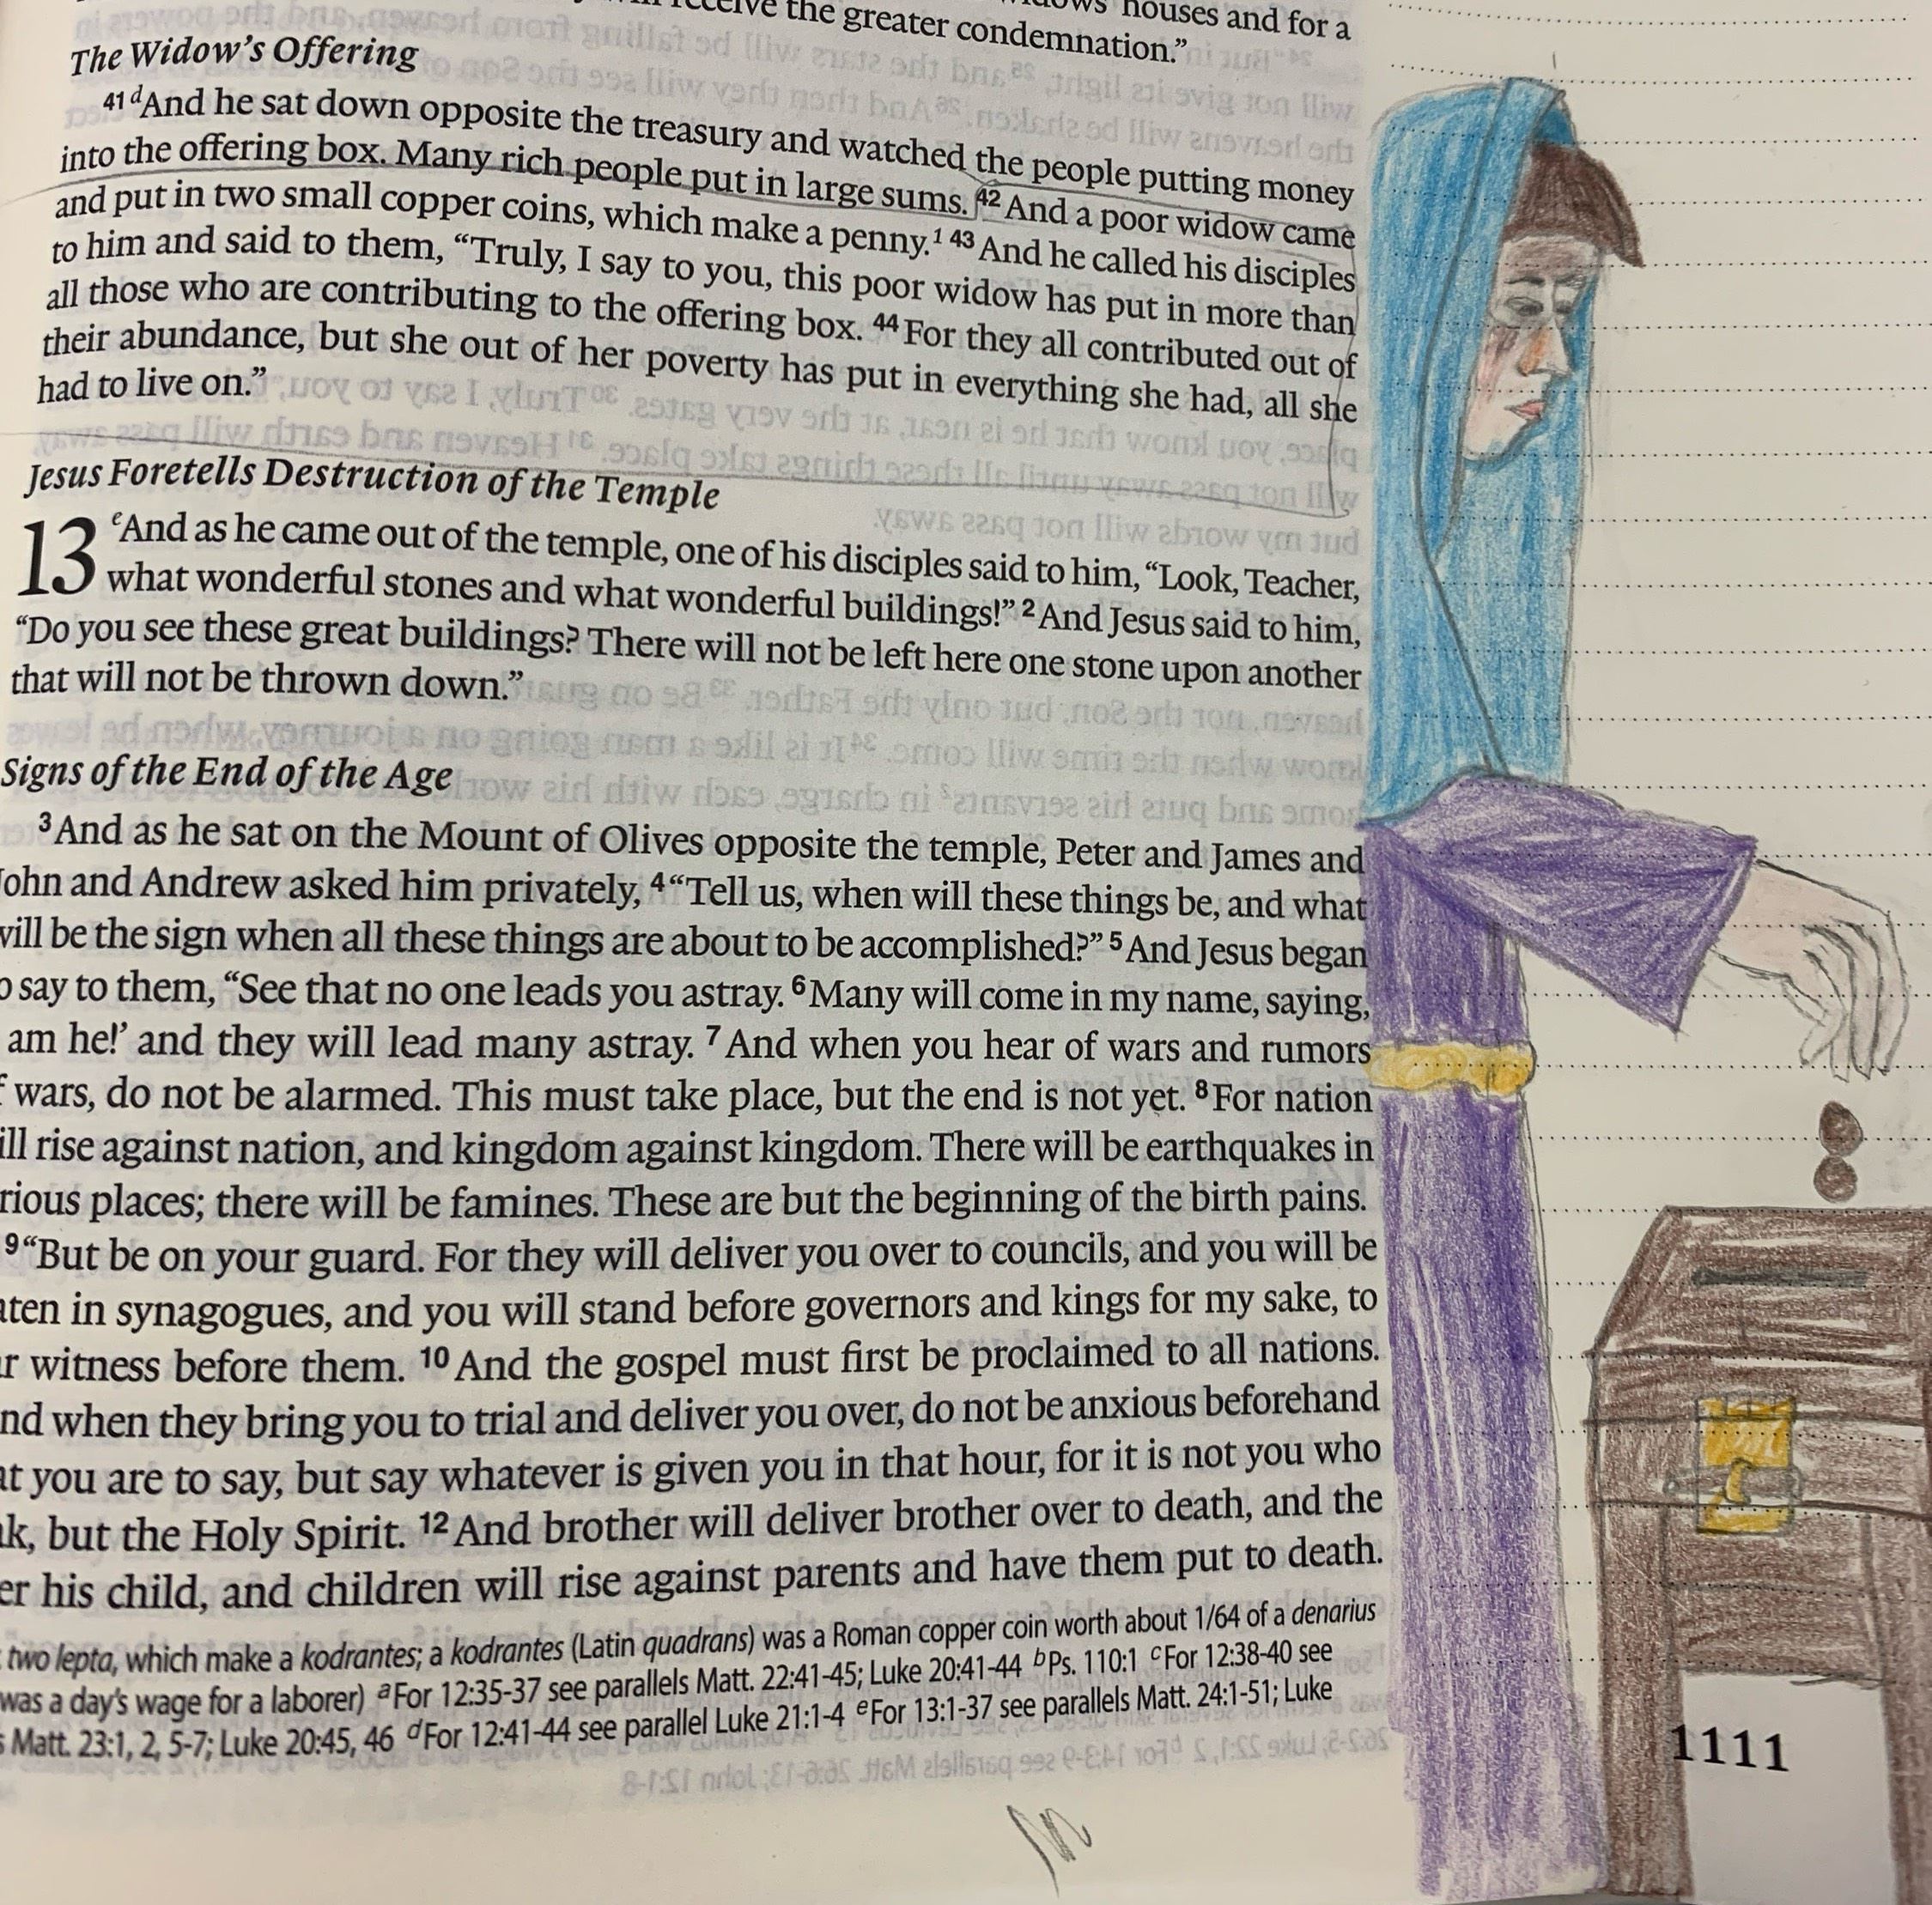 houses and for a
receive the greater condemnation.”
The Widow’s Offering
41 dAnd he sat down opposite the treasury and watched the people putting money
into the offering box. Many rich people put in large sums. 42 And a poor widow came
and put in two small copper coins, which make a penny.1 43 And he called his disciples
to him and said to them, “Truly, I say to you, this poor widow has put in more than
all those who are contributing to the offering box. 44 For they all contributed out of
their abundance, but she out of her poverty has put in everything she had, all she
had to live on.”
Jesus Foretells Destruction of the Temple
13 eAnd as he came out of the temple, one of his disciples said to him, “Look, Teacher,
what wonderful stones and what wonderful buildings!” 2 And Jesus said to him,
“Do you see these great buildings? There will not be left here one stone upon another
that will not be thrown down.”
Signs of the End of the Age
3 And as he sat on the Mount of Olives opposite the temple, Peter and James and
John and Andrew asked him privately, 4 “Tell us, when will these things be, and what
will be the sign when all these things are about to be accomplished?” 5 And Jesus began
say to them, “See that no one leads you astray. 6 Many will come in my name, saying,
am he!’ and they will lead many astray. 7 And when you hear of wars and rumors
wars, do not be alarmed. This must take place, but the end is not yet. 8 For nation
ill rise against nation, and kingdom against kingdom. There will be earthquakes in
rious places; there will be famines. These are but the beginning of the birth pains.
9 “But be on your guard. For they will deliver you over to councils, and you will be
ten in synagogues, and you will stand before governors and kings for my sake, to
r witness before them. 10 And the gospel must first be proclaimed to all nations.
nd when they bring you to trial and deliver you over, do not be anxious beforehand
at you are to say, but say whatever is given you in that hour, for it is not you who
k, but the Holy Spirit. 12 And brother will deliver brother over to death, and the
er his child, and children will rise against parents and have them put to death.
two lepta, which make a kodrantes; a kodrantes (Latin quadrans) was a Roman copper coin worth about 1/64 of a denarius
was a day’s wage for a laborer) aFor 12:35-37 see parallels Matt. 22:41-45; Luke 20:41-44 bPs. 110:1 cFor 12:38-40 see
Matt. 23:1, 2, 5-7; Luke 20:45, 46 dFor 12:41-44 see parallel Luke 21:1-4 eFor 13:1-37 see parallels Matt. 24:1-51; Luke
1111